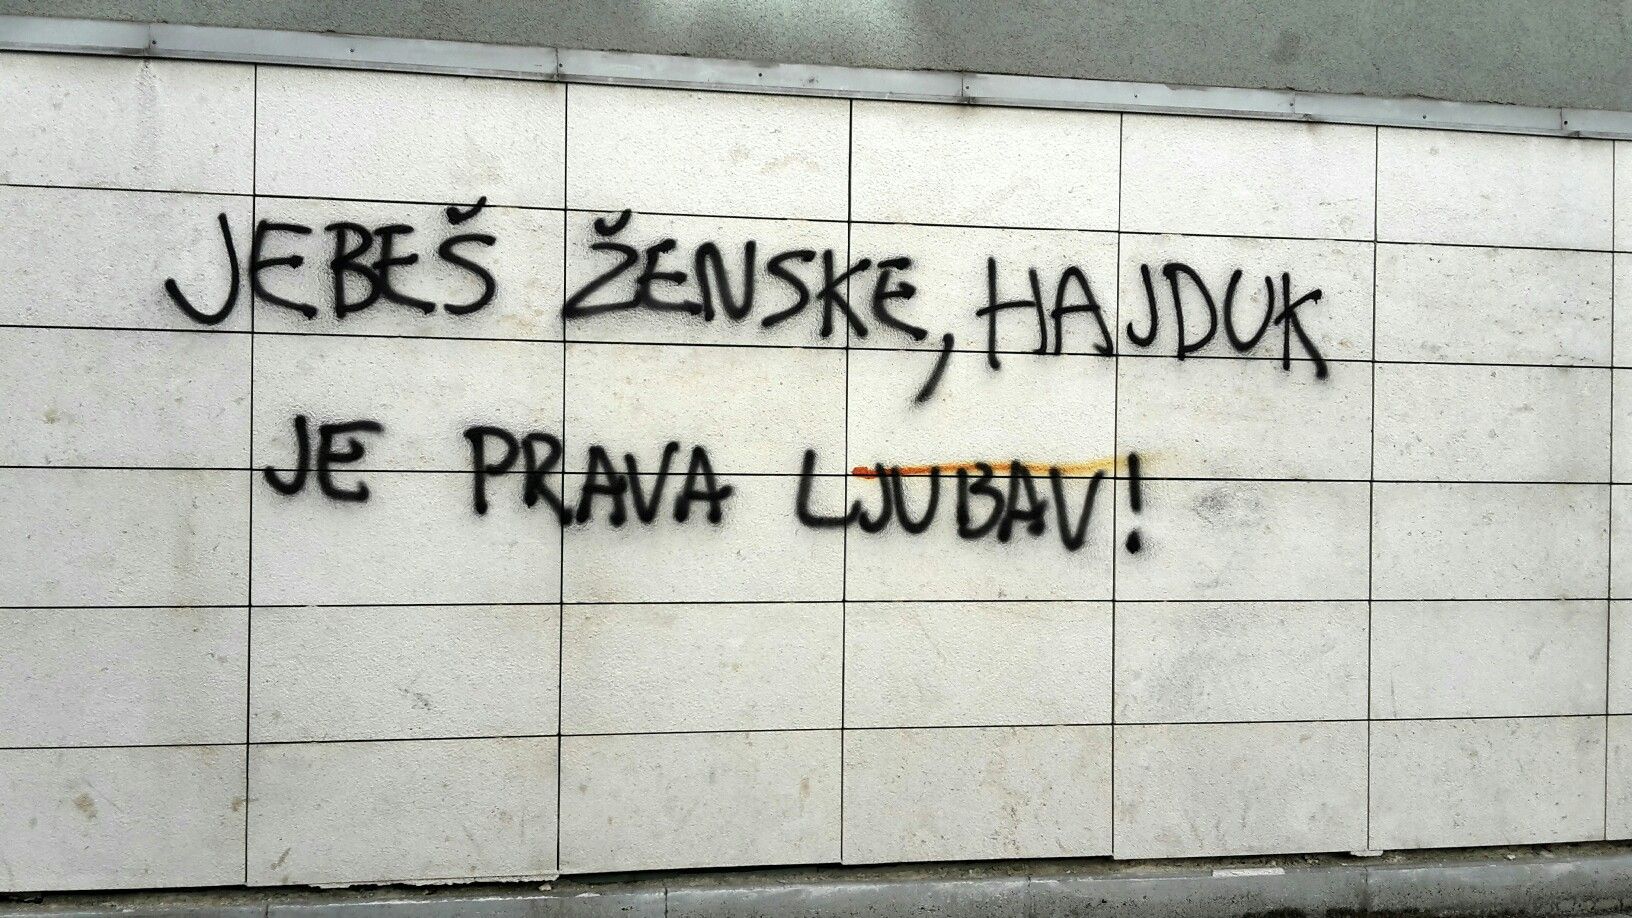 JEBEŠ ŽENSKE, HAJDUK
JE PRAVA LJUBAV!